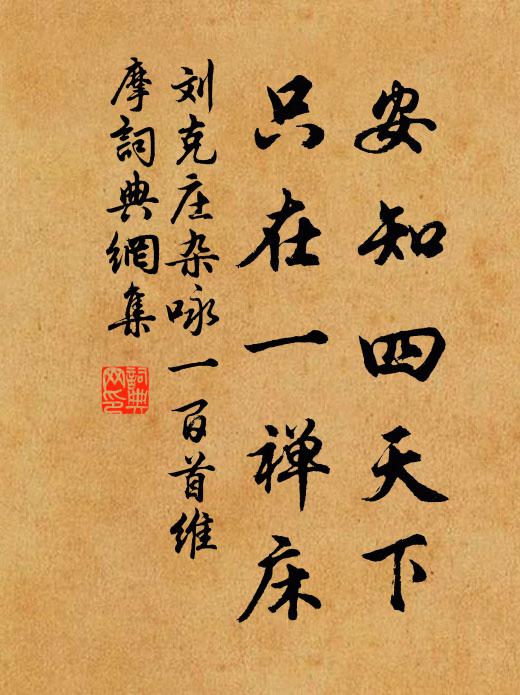 安知四天下
只在一禅床
刘克庄杂咏一百首维
摩詞典網集
詞典
网印